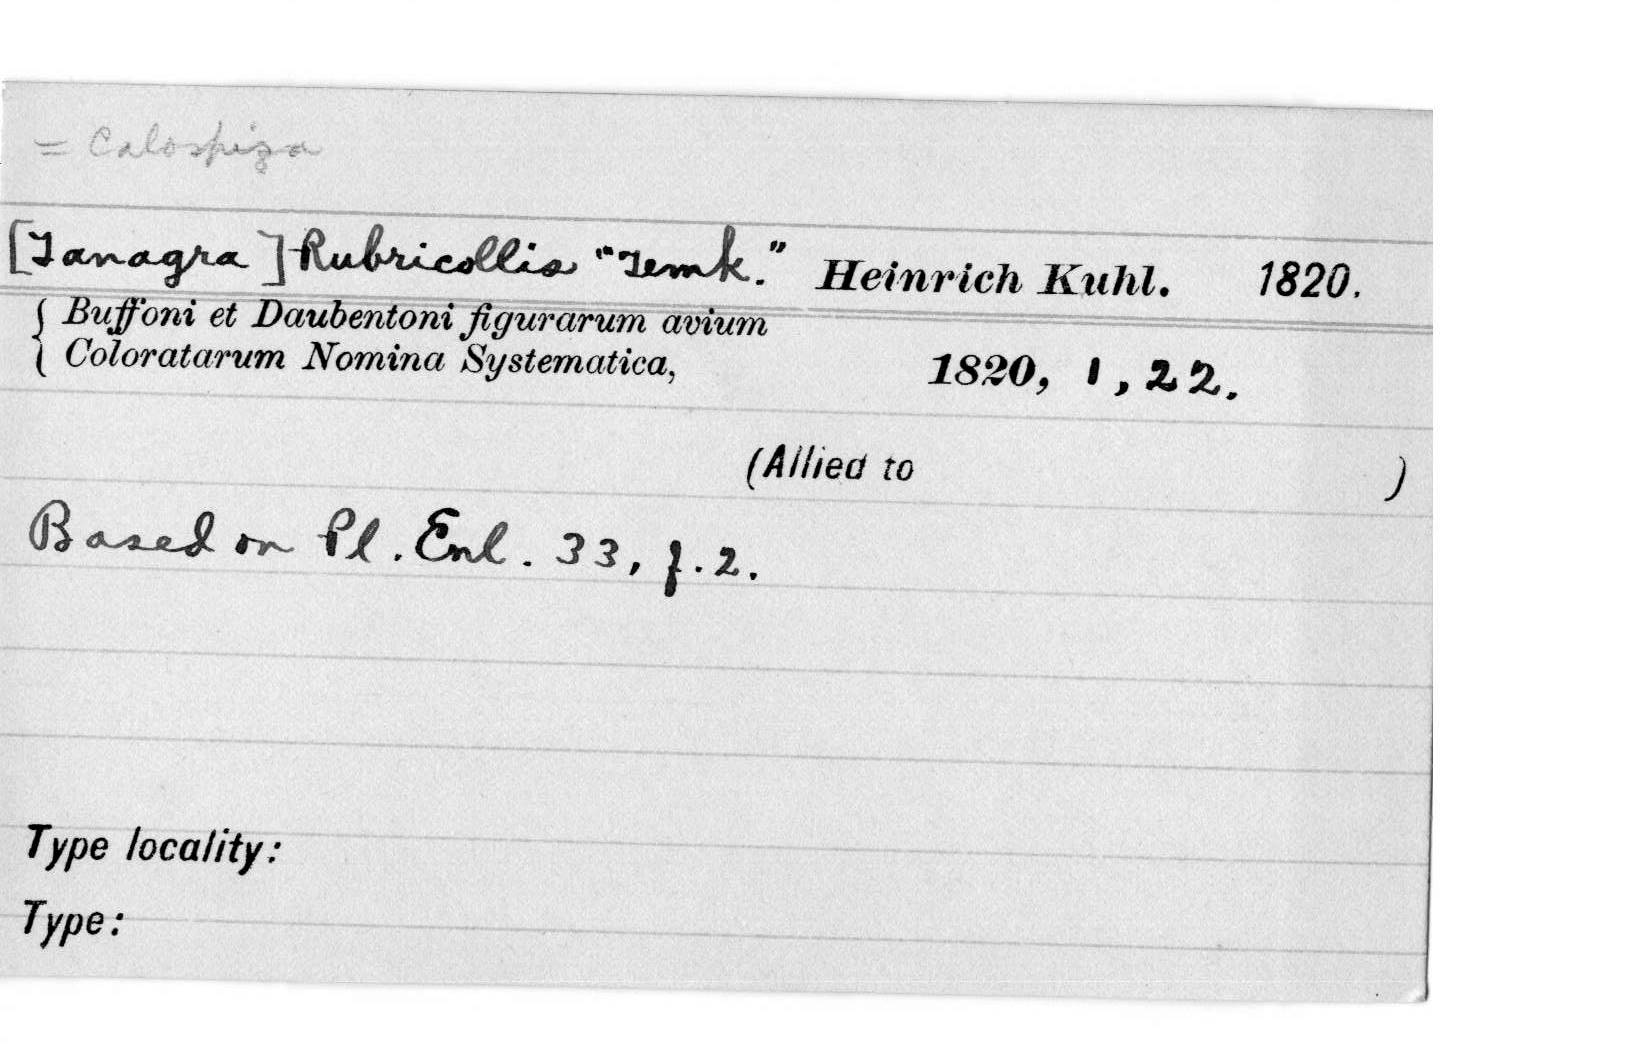 = Calospiza
[Tanagra] Rubricollis "Temk." Heinrich Kuhl. 1820.
{ Buffoni et Daubentoni figurarum avium
{ Coloratarum Nomina Systematica, 1820, 1, 22.
(Allied to )
Based on Pl. Enl. 33, f. 2.
Type locality:
Type: